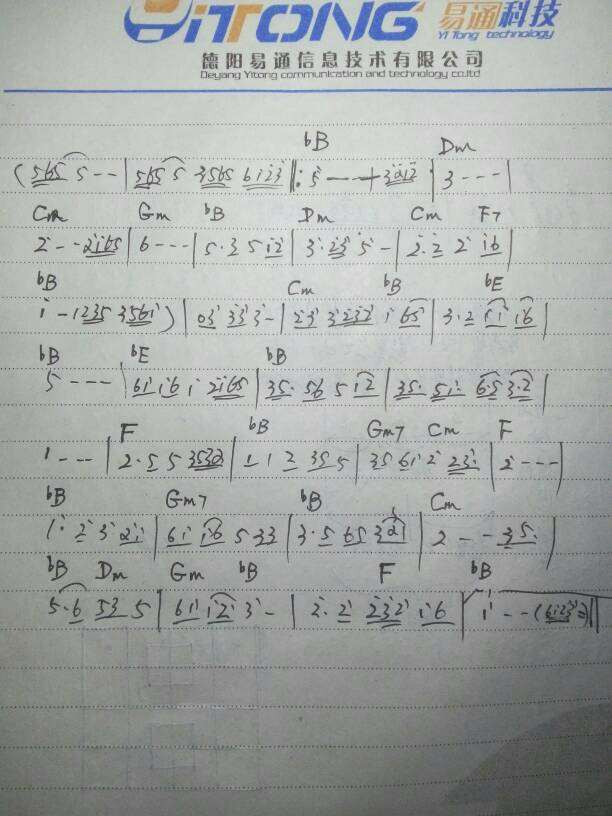 YiTONG 易通科技
Yi Tong technology
德阳易通信息技术有限公司
Deyang Yitong communication and technology co.ltd
bB Dm
(565 5 - - | 565 5 3565 6123 ||: 5 - - - 3212 | 3 - - -
Cm Gm bB Dm Cm F7
2 - - 2165 | 6 - - - | 5·3 5 12 | 3·23 5 - | 2·2 2 16 |
bB Cm bB bE
1 - 1235 3561) | 03 33 3 - | 23 3232 1 65 | 3·2 11 16 |
bB bE bB
5 - - - | 61 16 1 2165 | 35· 56 5 12 | 35· 51· 65 3·2 |
F bB Gm7 Cm F
1 - - | 2·5 5 3532 | 1 1 2 35 5 | 35 61 2 23· | 2 - - - |
bB Gm7 bB Cm
1· 2 3 21 | 61 16 5 33 | 3·5 65 321 | 2 - - 35· |
bB Dm Gm bB F bB
5·6 53 5 | 61 12 3 - | 2·2 232 16 | 1 - - (6123) ||